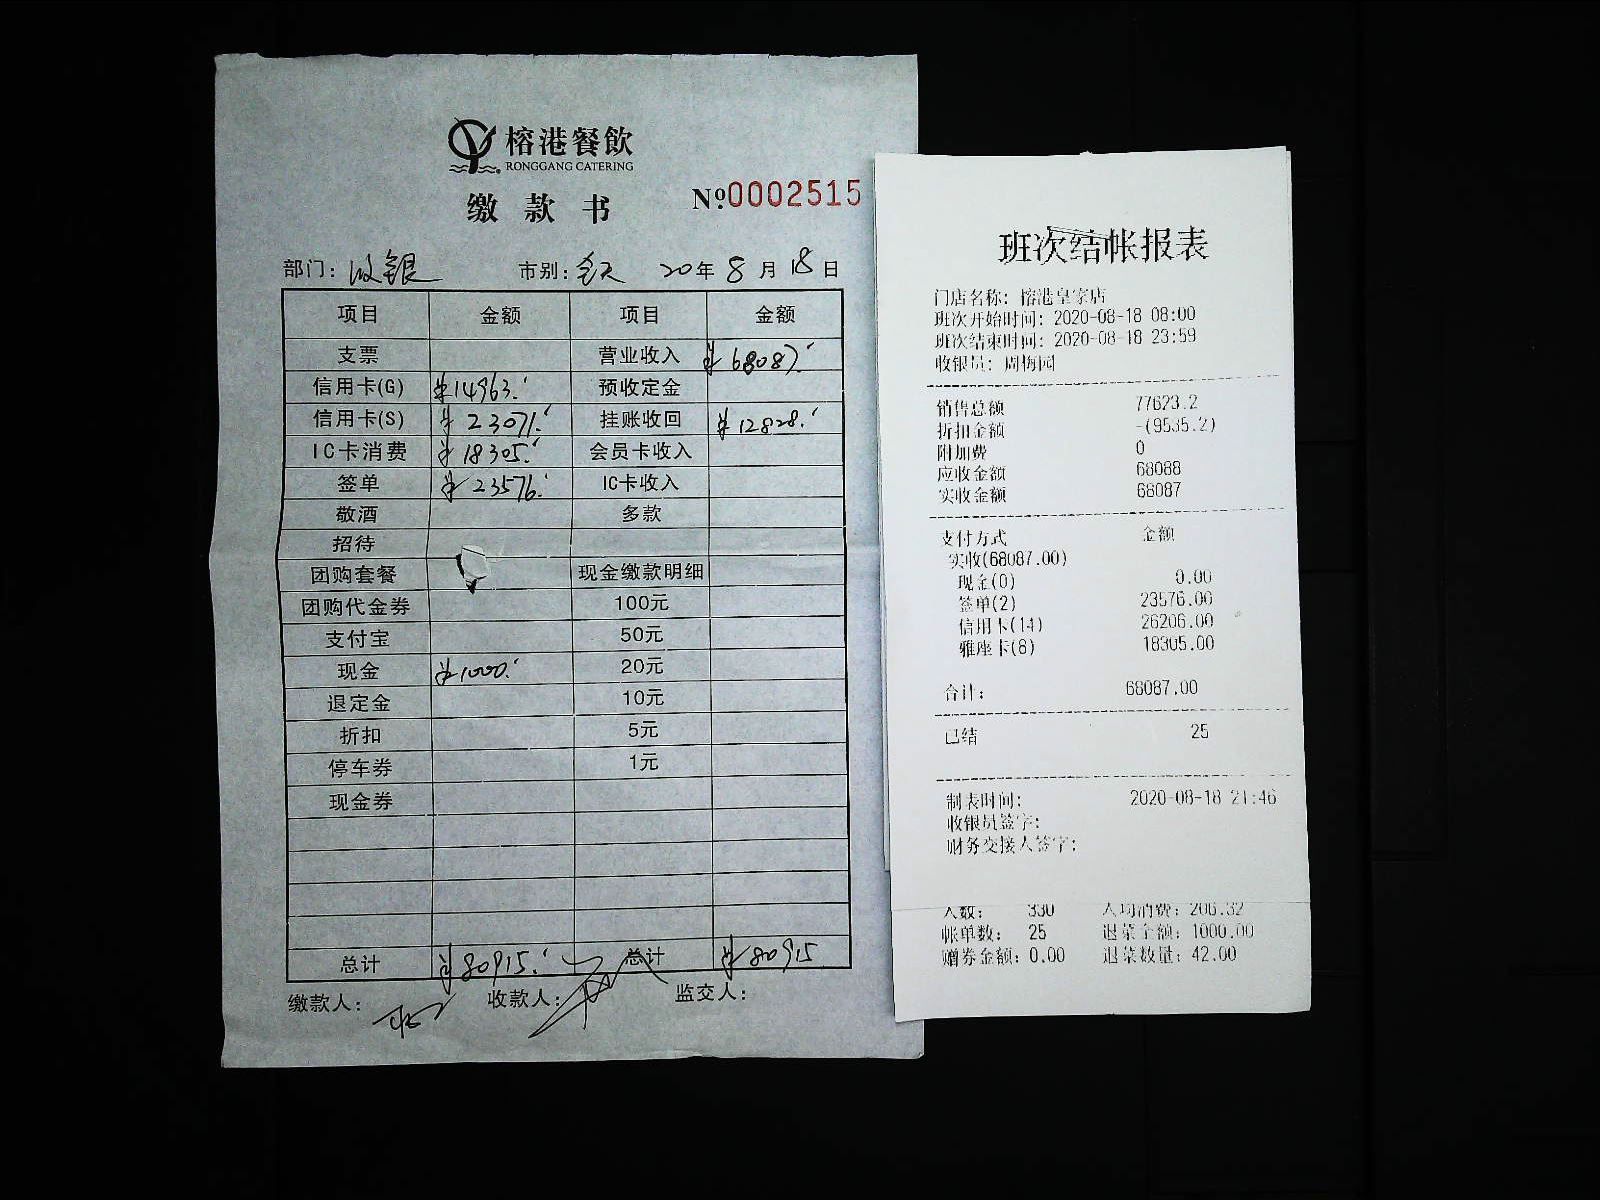 榕港餐飲
RONGGANG CATERING
缴款书
№0002515
部门：收银 市别：全天 20年8月18日
项目 金额 项目 金额
支票 营业收入 ¥68087.
信用卡(G) ¥14963. 预收定金
信用卡(S) ¥23071. 挂账收回 ¥12828.
IC卡消费 ¥18305. 会员卡收入
签单 ¥23576. IC卡收入
敬酒 多款
招待
团购套餐 现金缴款明细
团购代金券 100元
支付宝 50元
现金 ¥1000. 20元
退定金 10元
折扣 5元
停车券 1元
现金券
总计 ¥80915. 总计 ¥80915
缴款人： 收款人： 监交人：
班次结帐报表
门店名称：榕港皇家店
班次开始时间：2020-08-18 08:00
班次结束时间：2020-08-18 23:59
收银员：周梅园
销售总额 77623.2
折扣金额 -(9535.2)
附加费 0
应收金额 68088
实收金额 68087
支付方式 金额
实收(68087.00)
现金(0) 0.00
签单(2) 23576.00
信用卡(14) 26206.00
雅座卡(8) 18305.00
合计： 68087.00
已结 25
制表时间： 2020-08-18 21:46
收银员签字：
财务交接人签字：
人数： 330 人均消费：206.32
帐单数： 25 退菜金额：1000.00
赠券金额：0.00 退菜数量：42.00